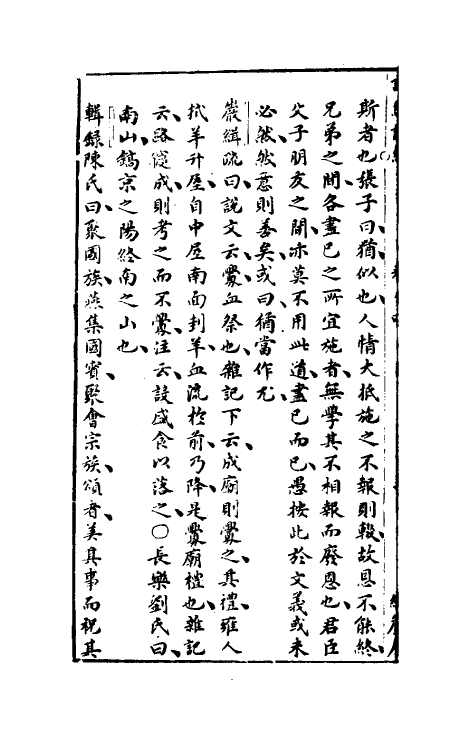 斯者也張子曰猶似也人情大抵施之不報則輟故恩不能終
兄弟之間各盡已之所宜施者無學其不相報而廢恩也君臣
父子朋友之間亦莫不用此道盡已而已愚按此於文義或未
必然然意則善矣或曰猶當作尤
嚴緝疏曰說文云釁血祭也雜記下云成廟則釁之其禮雍人
拭羊升屋自中屋南面刲羊血流於前乃降是釁廟禮也雜記
云路寢成則考之而不釁注云設盛食以落之○長樂劉氏曰
南山鎬京之陽終南之山也
輯錄陳氏曰聚國族燕集國賓聚會宗族頌者美其事而祝其